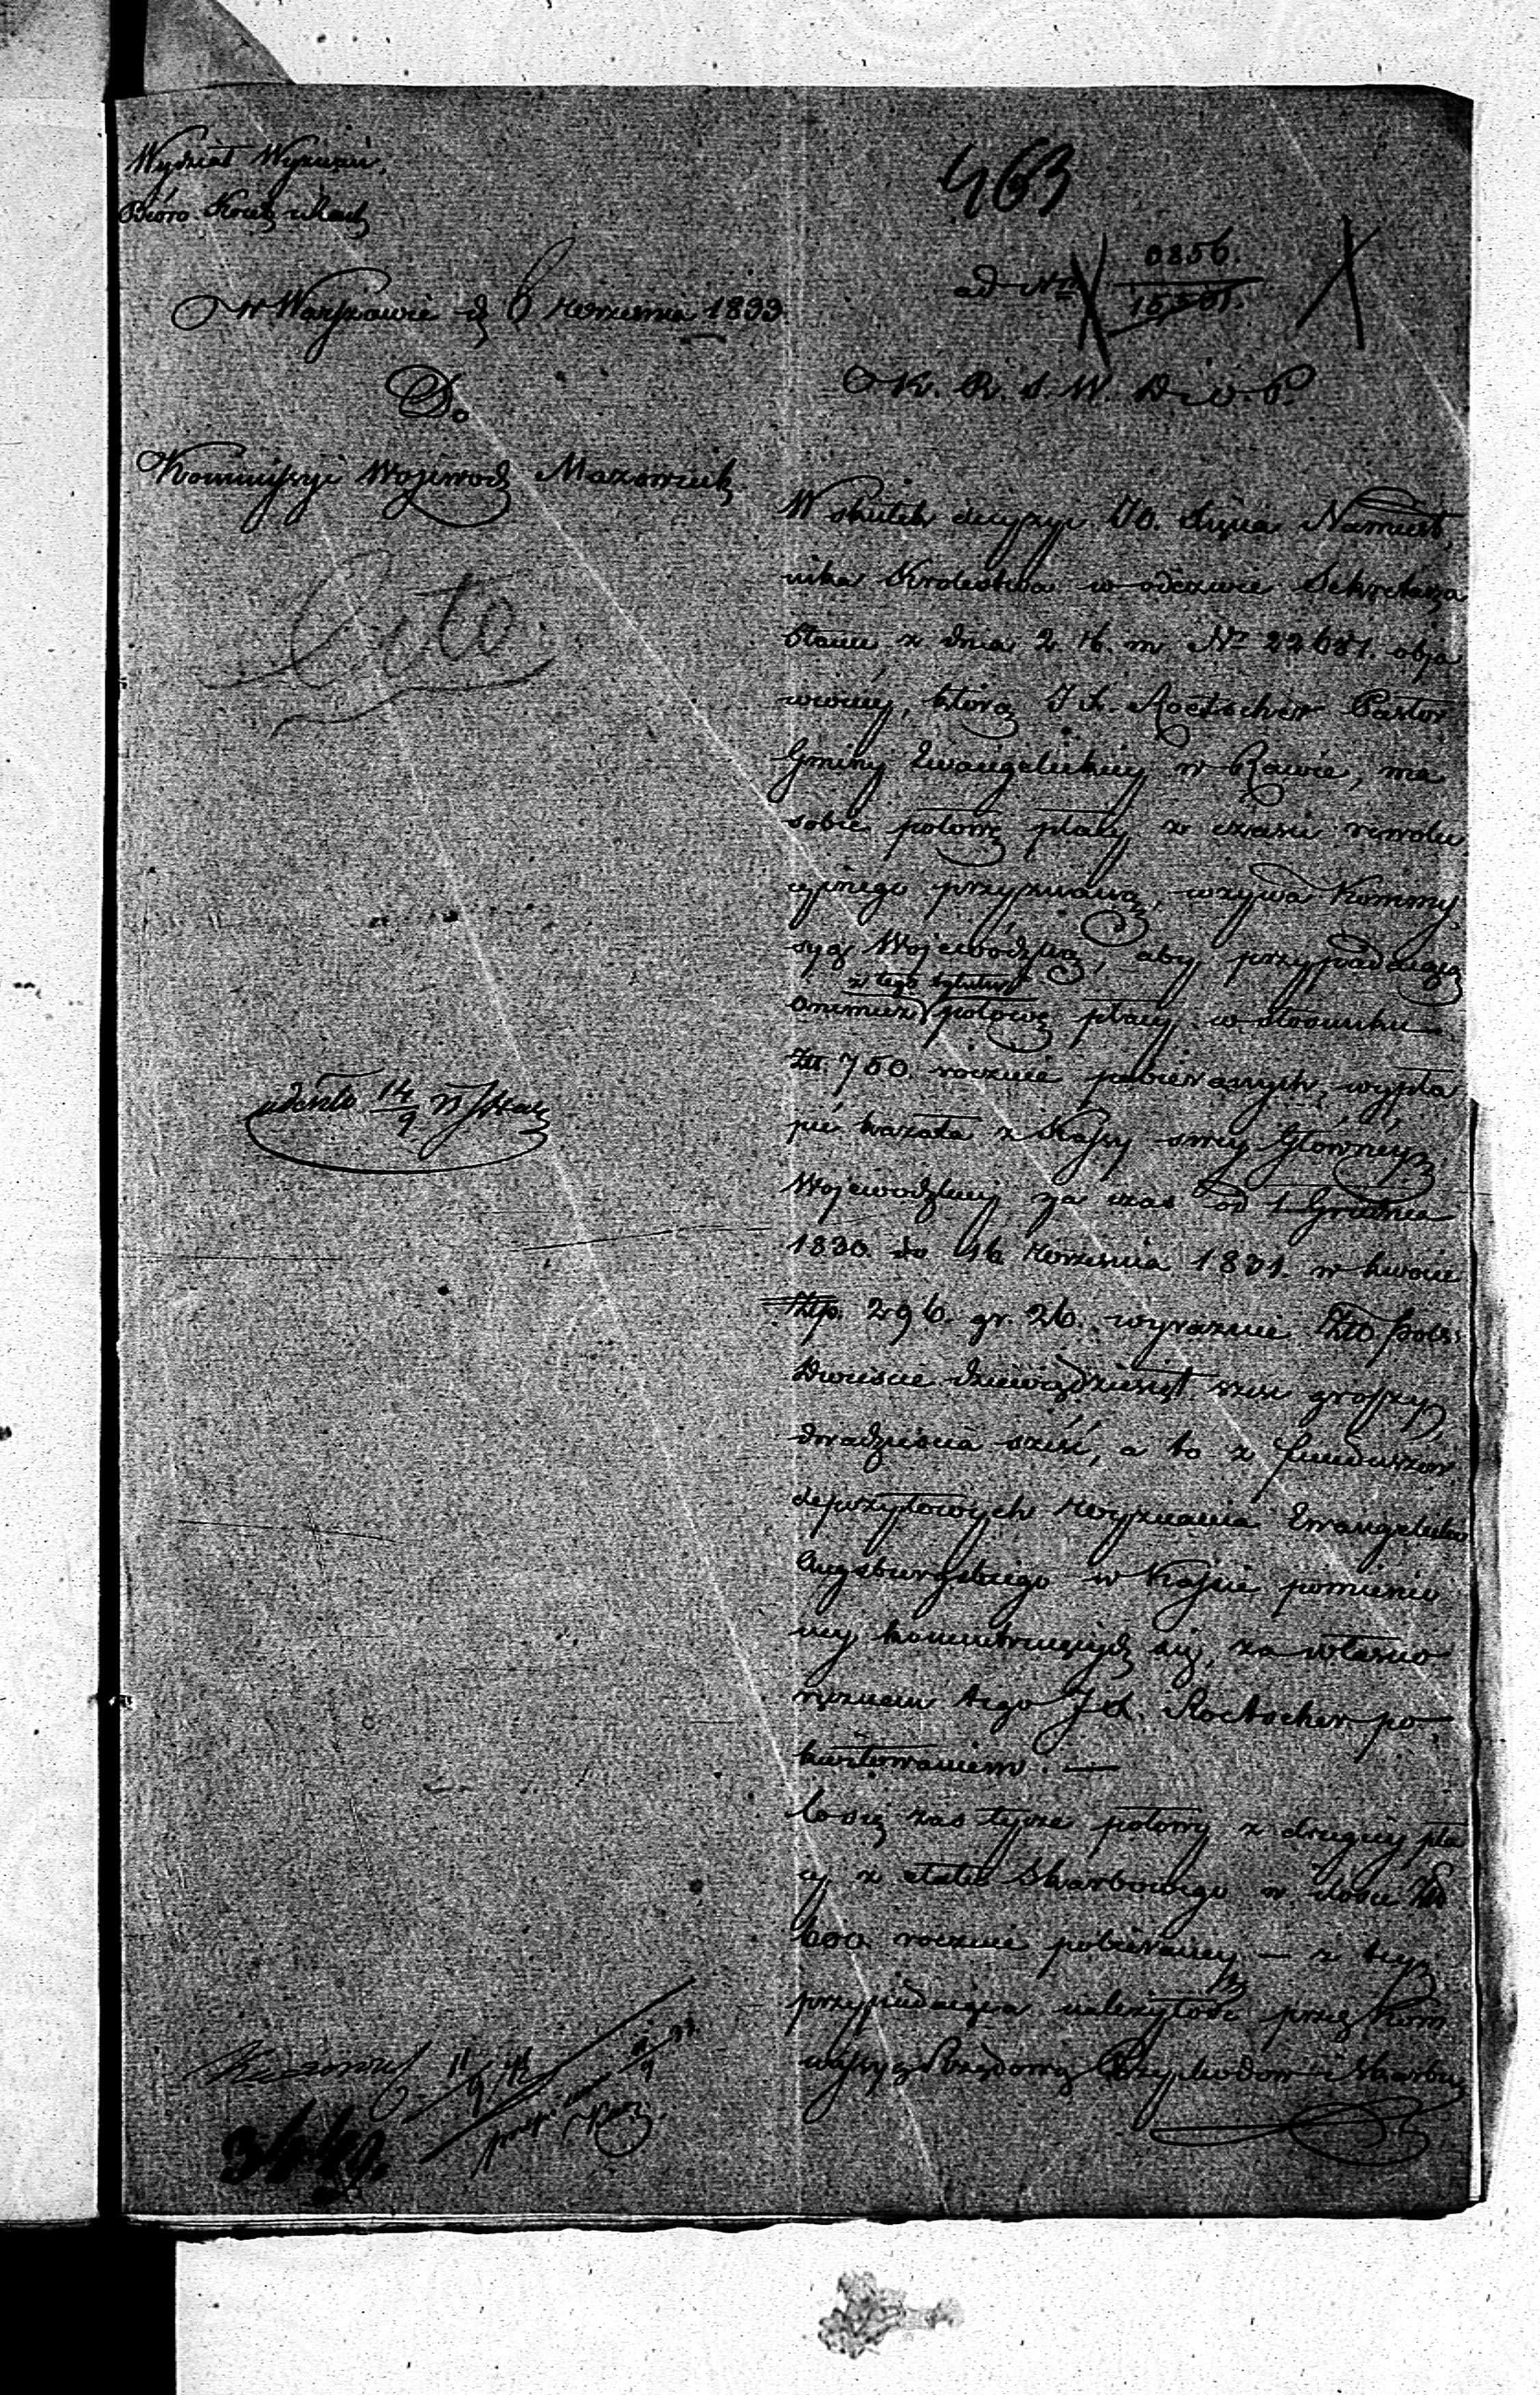 Wydział Wyznań,
Bióro
463
w Warszawie d 6 Września 1833
ad Nr
Do
K. R. S. W. D. i O. P.
Kommissyi Wojewodz Mazowieck
Cito
W skutek decyzyi JO. Xięcia Namiest,
nika Królestwa w odezwie Sekretarza
Stanu z dnia 2. b. m. Nr 22681. obja
wioney, którą J X. Roetscher Pastor
Gminy Ewangelickiey w Rawie, ma
sobie połowę płacy z czasu rewolu
cyjnego przyznaną, wzywa Kommis
syą Wojewódzką, aby przypadaiącą
z tego tytułu
onemuż połowę płacy w stosunku
Zł. 750. rocznie pobieranych, wypła
cić kazała z Kassy swey Główney
Wojewódzkiey za czas od 1 Grudnia
1830 do 16 Września 1831. w kwocie
Złp. 296. gr. 26. wyraźnie Złt pols:
Dwieście dziewięćdziesiąt sześć groszy
dwadzieścia sześć, a to z funduszów
depozytowych Wyznania Ewangelicko
Augsburgskiego w Kassie pomienio
ney się, za własno
ręcznem tego JX. Roetscher po,
kwitowaniem. —
Co się zaś tycze połowy z drugiey pła
cy z etatu Skarbowego w ilości Zł
600 rocznie pobieraney — z tey
przypadaiąca należytość przez Kom
missyą Rządową Przychodów i Skarbu
odeszło 14/9
3449.